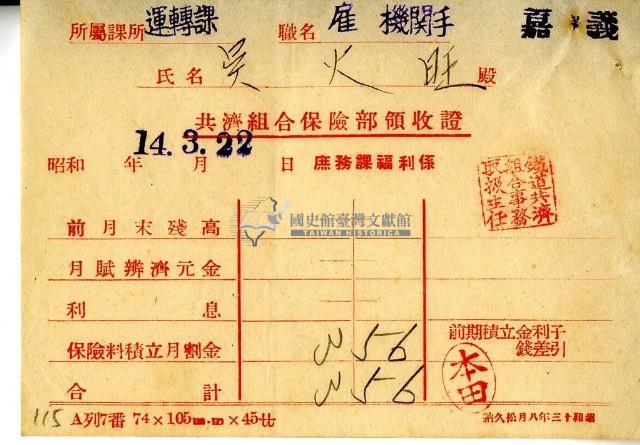 所屬課所 運轉課 職名 雇 機関手 嘉義
氏名 吳火旺 殿
共濟組合保險部領收證
昭和 14.3.22 年 月 日 庶務課福利係
鐵道共濟組合事務取扱主任
國史館臺灣文獻館
TAIWAN HISTORICA
前月末殘高
月賦辨濟元金
利息
前期積立金利子錢差引
保險料積立月割金 56
本田
合計 56
115 A列7番 74×105 ×45
昭和十三年八月松久納